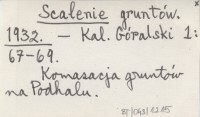 Scalenie gruntów.
1932. — Kal. Góralski 1:
67-69.
Komasacja gruntów
na Podhalu.
BP/043/1215